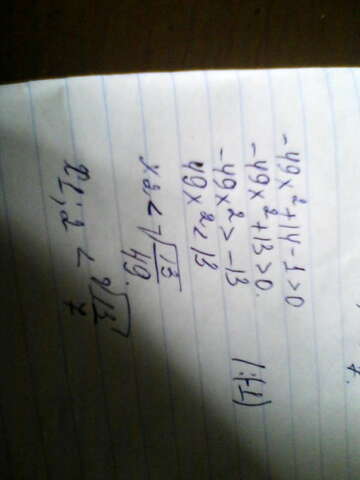 -49x²+14-1>0
-49x²+13>0.
-49x²>-13 /:(-1)
49x²<13
x²<√13/49.
x1,2<²√13/7